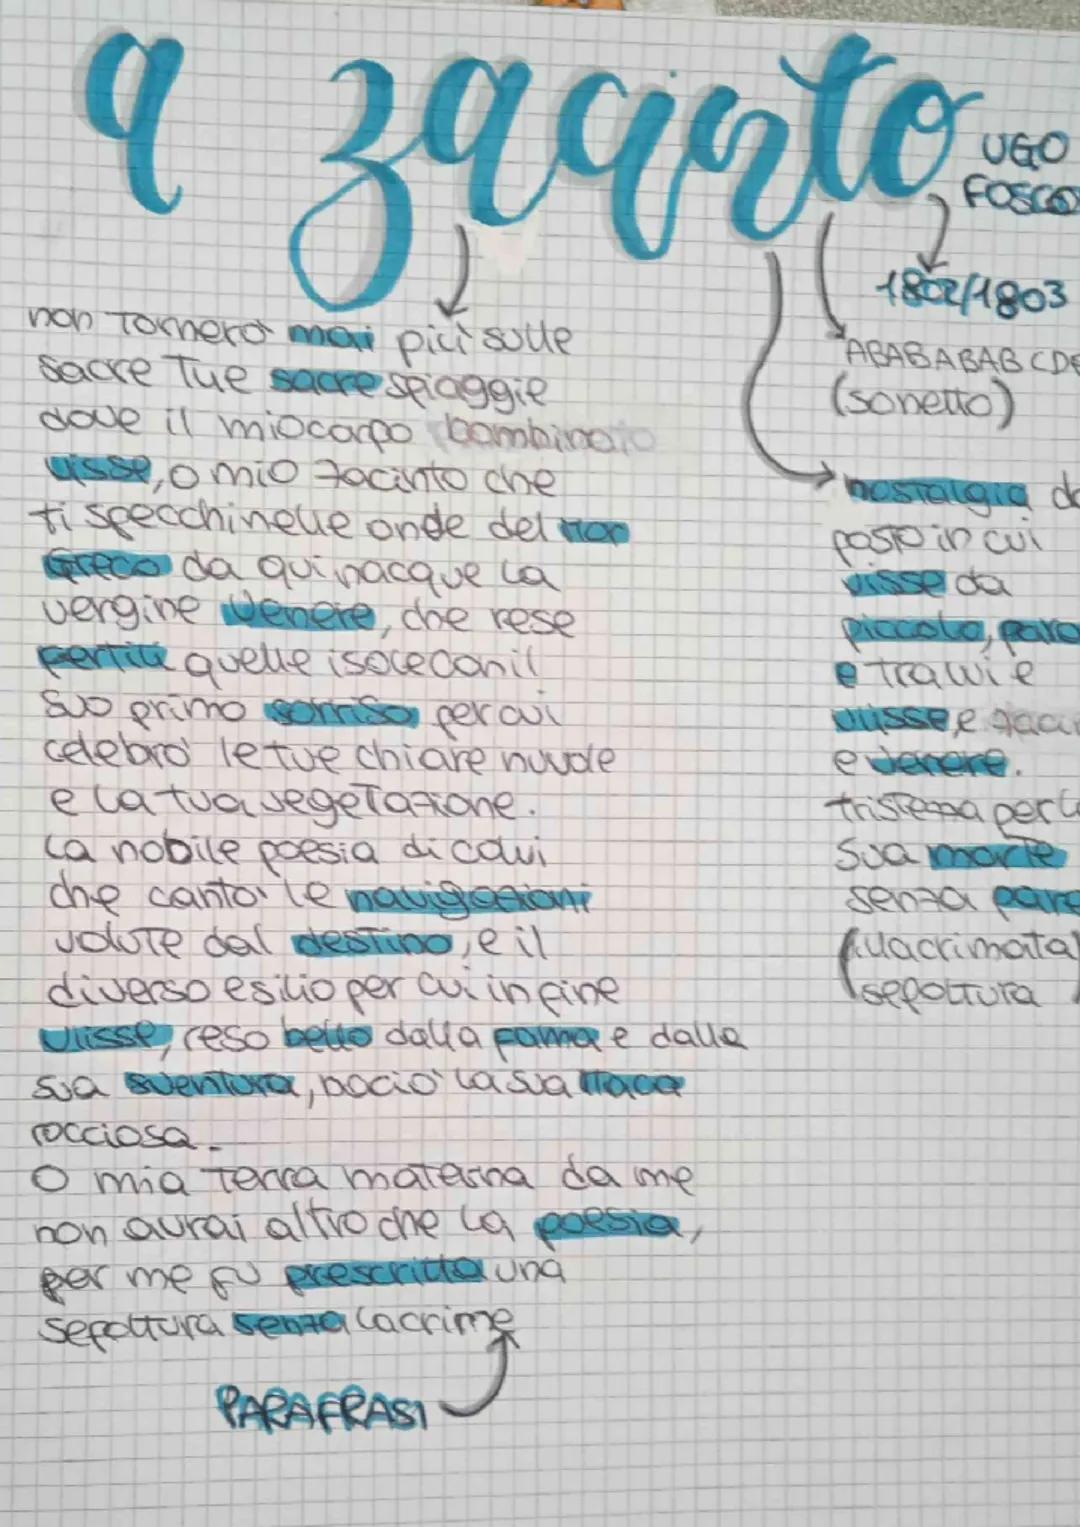 a zacinto
UGO
FOSCO
1802/1803
ABABABAB CDE
(sonetto)
non tornerò mai più sulle
sacre tue sacre spiaggie
dove il mio corpo bambino
visse, o mio Zacinto che
ti specchi nelle onde del mar
Greco da qui nacque la
vergine Venere, che rese
fertili quelle isole con il
suo primo sorriso, per cui
celebrò le tue chiare nuvole
e la tua vegetazione.
La nobile poesia di colui
che cantò le navigazioni
volute dal destino, e il
diverso esilio per cui infine
Ulisse, reso bello dalla fama e dalla
sua sventura, baciò la sua Itaca
rocciosa.
O mia terra materna da me
non avrai altro che la poesia,
per me fu prescritta una
sepoltura senza lacrime
PARAFRASI
nostalgia d
posto in cui
visse da
piccolo, para
e tra lui e
ulisse, e zaci
e venere.
tristezza per l
sua morte
senza pare
(illacrimata
sepoltura)